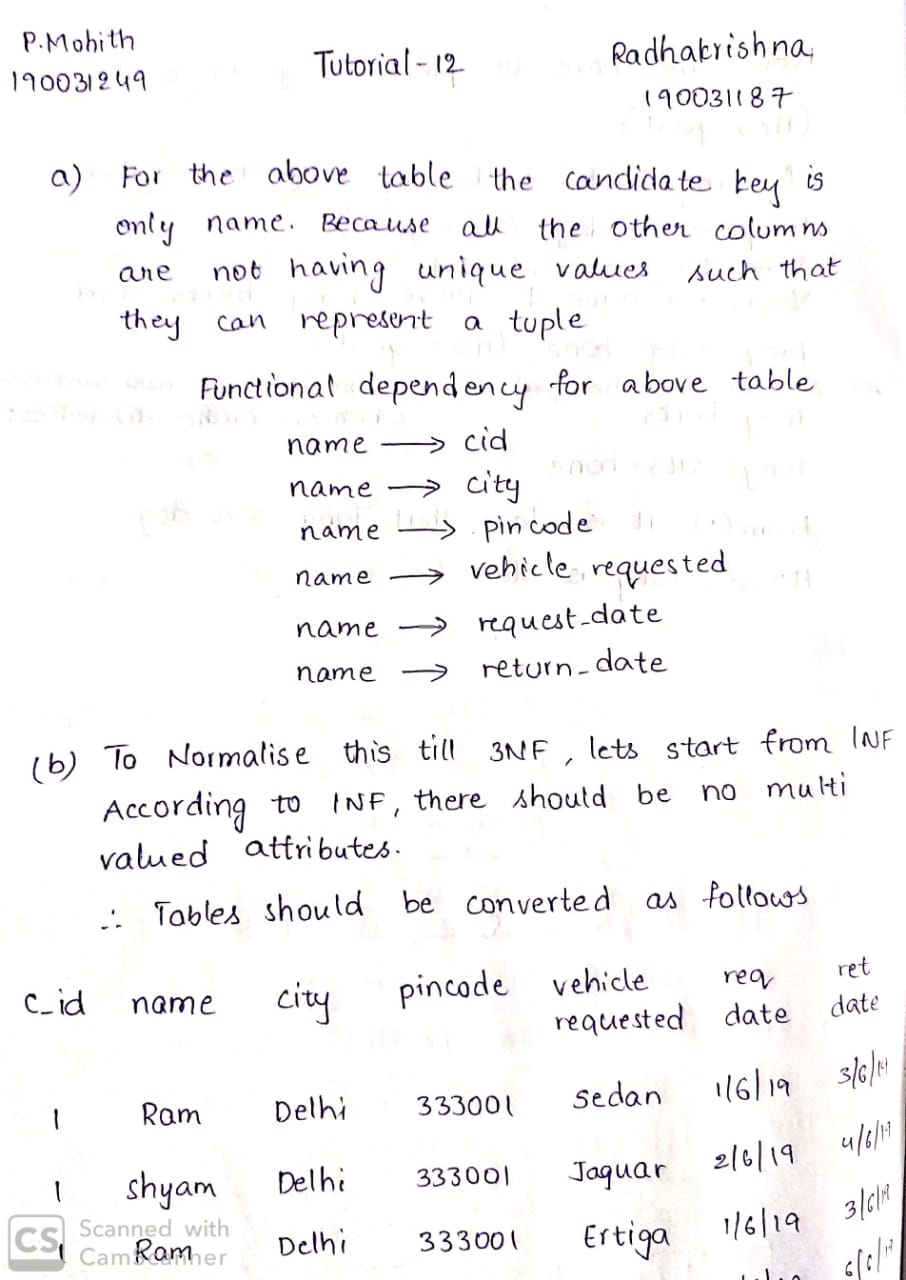 P.Mohith
190031249
Tutorial-12
Radhakrishna
190031187
a) For the above table the candidate key is
only name. Because all the other columns
are not having unique values such that
they can represent a tuple
Functional dependency for above table
name → cid
name → city
name → pincode
name → vehicle_requested
name → request_date
name → return_date
(b) To Normalise this till 3NF, lets start from 1NF
According to 1NF, there should be no multi
valued attributes.
∴ Tables should be converted as follows
c_id name city pincode vehicle requested req date ret date
1 Ram Delhi 333001 sedan 1/6/19 3/6/19
1 shyam Delhi 333001 Jaguar 2/6/19 4/6/19
1 Ram Delhi 333001 Ertiga 1/6/19 3/6/19
6/6/19
CS Scanned with
CamScanner